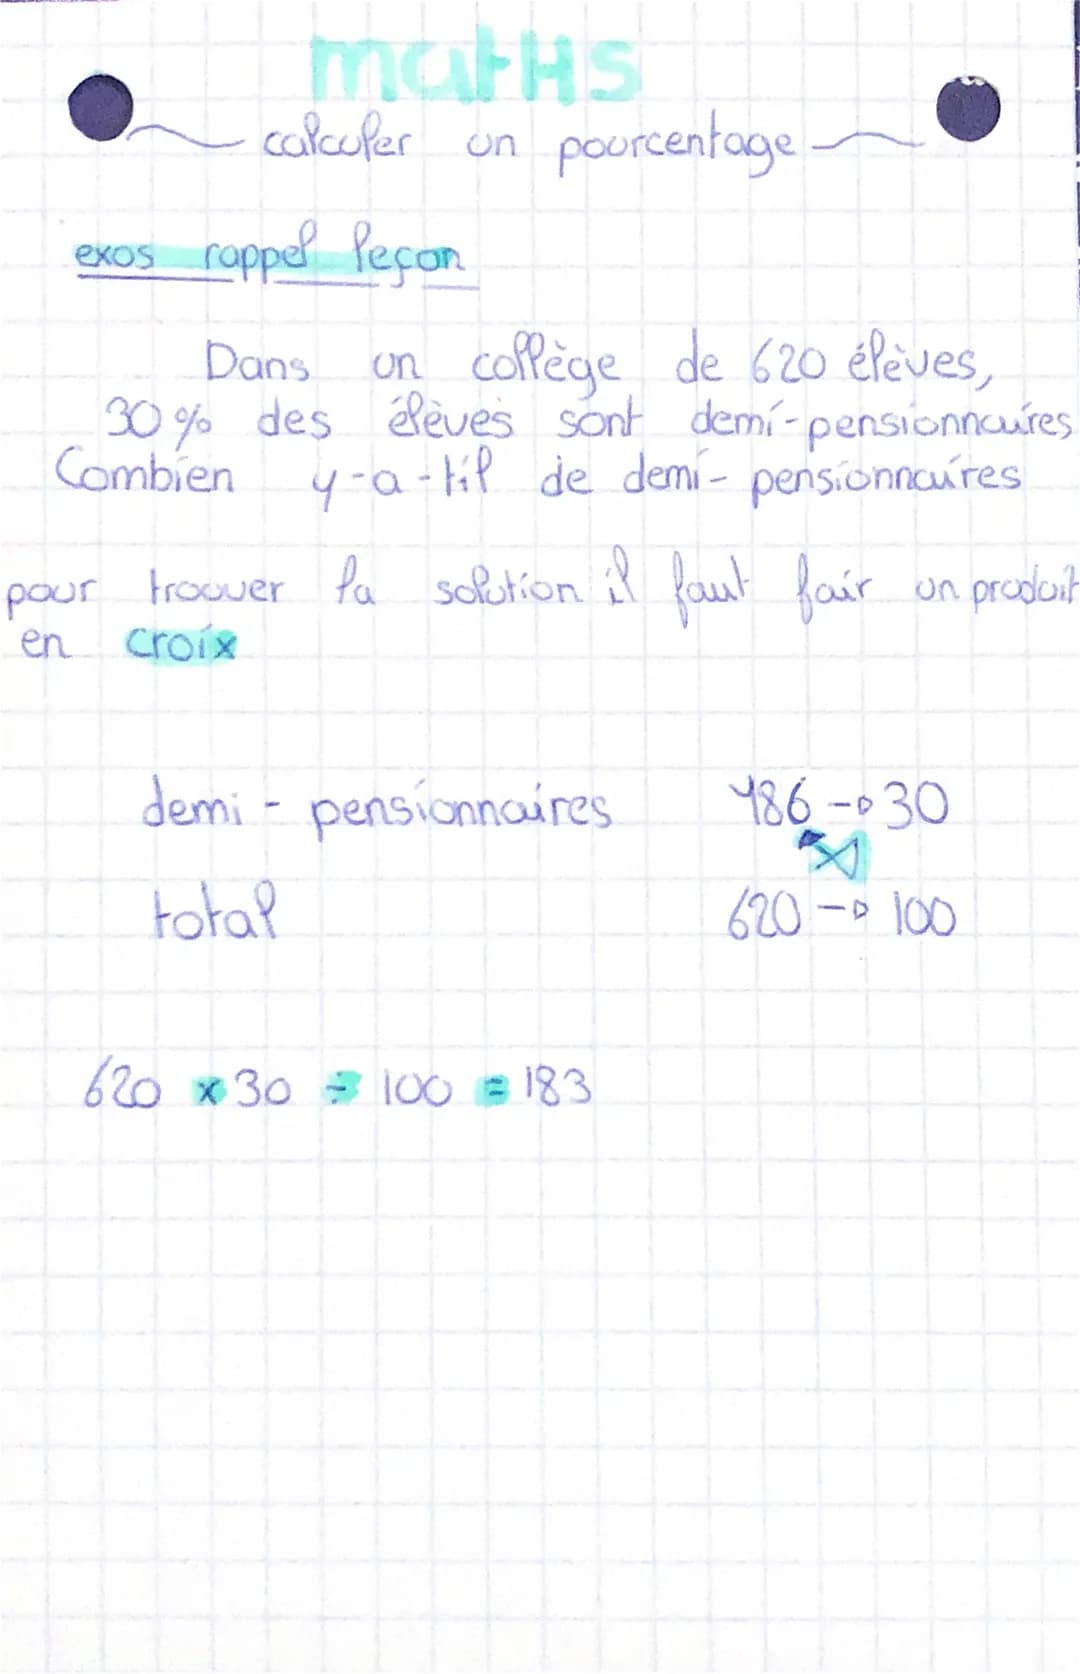 matHs
calculer un pourcentage
exos rappel leçon
Dans un collège de 620 élèves,
30% des élèves sont demi-pensionnaires
Combien y-a-til de demi-pensionnaires
pour trouver la solution il faut fair un produit
en croix
demi-pensionnaires 186 → 30
total 620 → 100
620 x 30 ÷ 100 = 183